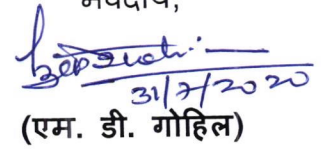 भवदीय,
31/7/2020
(एम. डी. गोहिल)